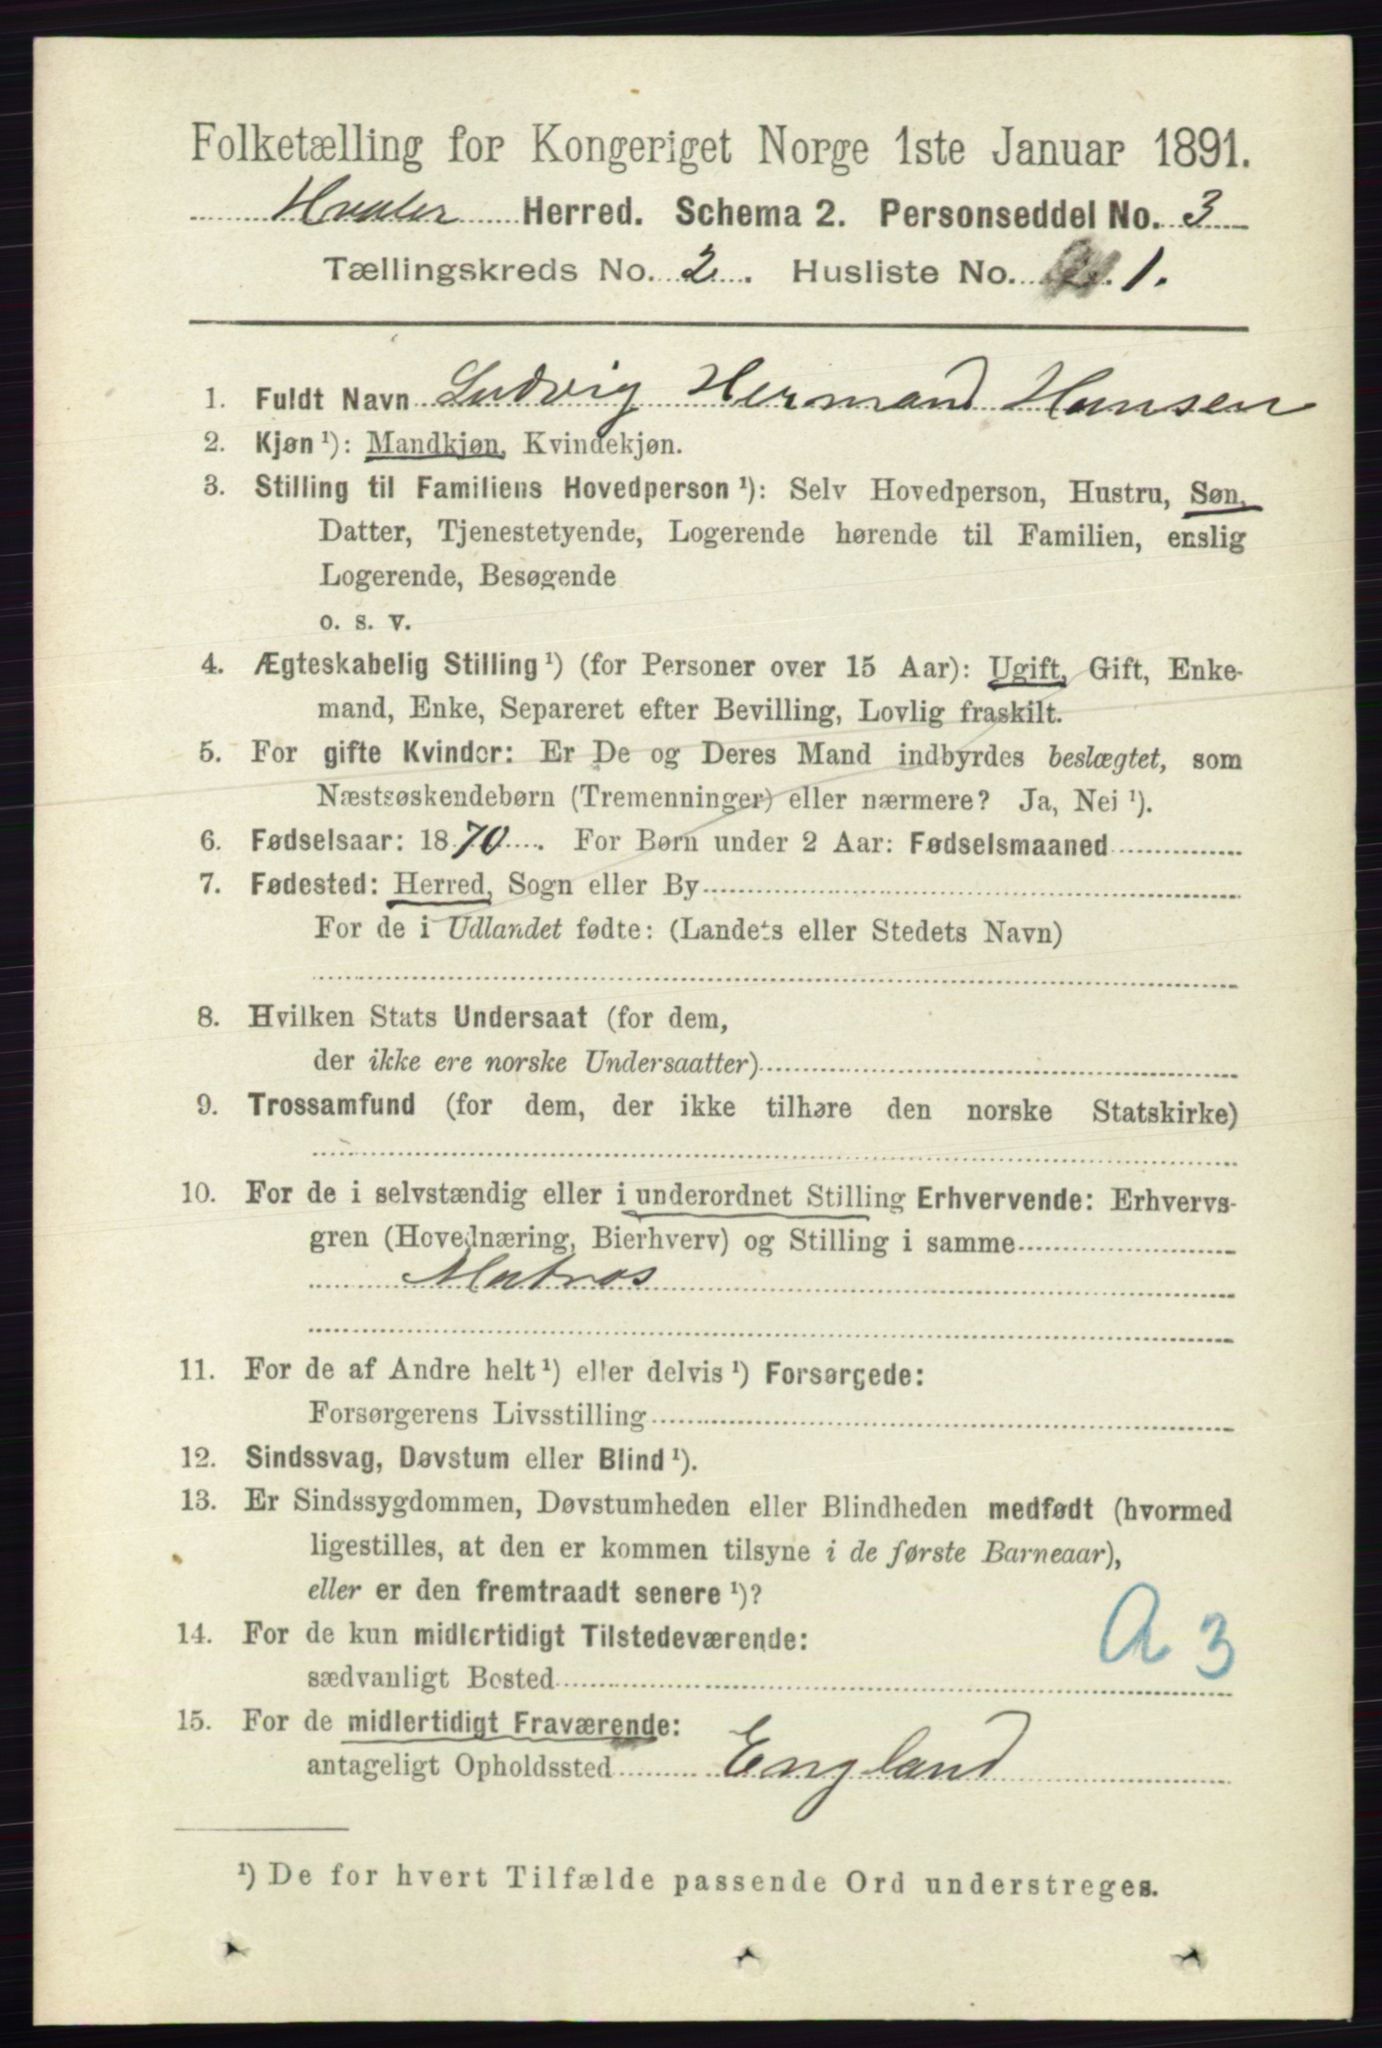 Folketælling for Kongeriget Norge 1ste Januar 1891.
Hvaler Herred. Schema 2. Personseddel No. 3
Tællingskreds No. 2. Husliste No. 1.
1. Fuldt Navn Ludvig Hermand Hansen
2. Kjøn ¹): Mandkjøn, Kvindekjøn.
3. Stilling til Familiens Hovedperson ¹): Selv Hovedperson, Hustru, Søn,
Datter, Tjenestetyende, Logerende hørende til Familien, enslig
Logerende, Besøgende
o. s. v.
4. Ægteskabelig Stilling ¹) (for Personer over 15 Aar): Ugift, Gift, Enke-
mand, Enke, Separeret efter Bevilling, Lovlig fraskilt.
5. For gifte Kvinder: Er De og Deres Mand indbyrdes beslægtet, som
Næstsøskendebørn (Tremenninger) eller nærmere? Ja, Nei ¹).
6. Fødselsaar: 1870. For Børn under 2 Aar: Fødselsmaaned
7. Fødested: Herred, Sogn eller By
For de i Udlandet fødte: (Landets eller Stedets Navn)
8. Hvilken Stats Undersaat (for dem,
der ikke ere norske Undersaatter)
9. Trossamfund (for dem, der ikke tilhøre den norske Statskirke)
10. For de i selvstændig eller i underordnet Stilling Erhvervende: Erhvervs-
gren (Hovednæring, Bierhverv) og Stilling i samme
Matros
11. For de af Andre helt ¹) eller delvis ¹) Forsørgede:
Forsørgerens Livsstilling
12. Sindssvag, Døvstum eller Blind ¹).
13. Er Sindssygdommen, Døvstumheden eller Blindheden medfødt (hvormed
ligestilles, at den er kommen tilsyne i de første Barneaar),
eller er den fremtraadt senere ¹)?
14. For de kun midlertidigt Tilstedeværende:
sædvanligt Bosted
A 3
15. For de midlertidigt Fraværende:
antageligt Opholdssted England
¹) De for hvert Tilfælde passende Ord understreges.